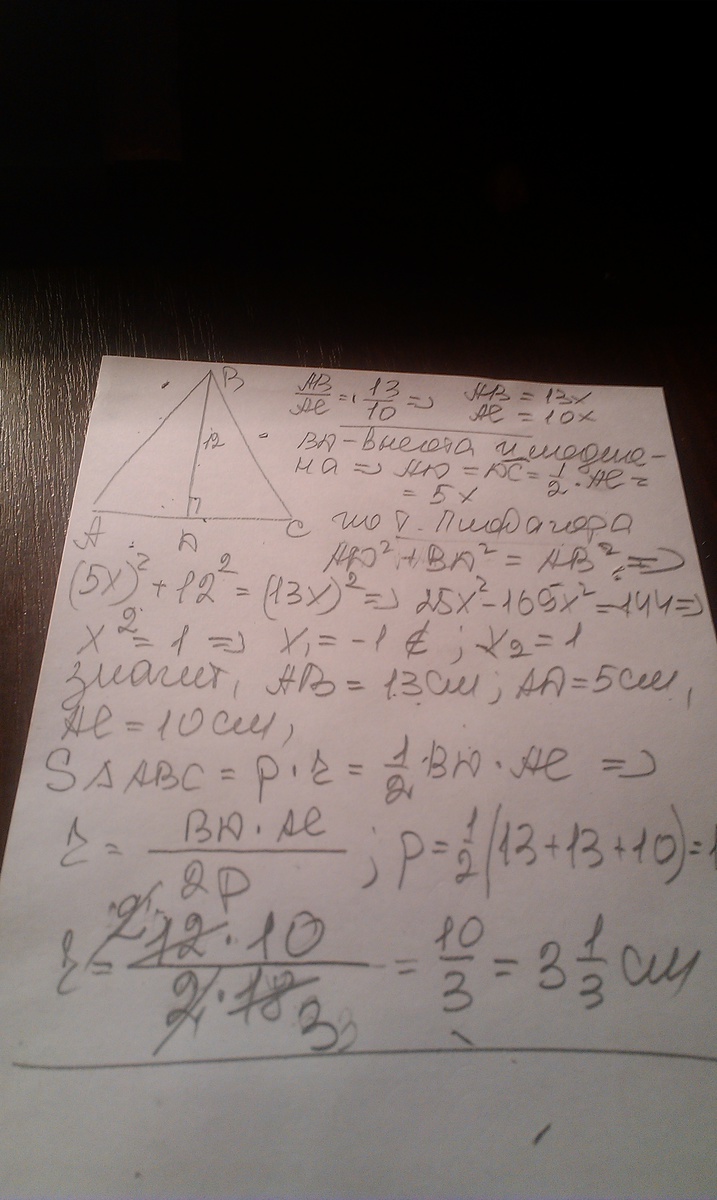 B
AB/AC = 13/10 => AB = 13x
AC = 10x
12
BD - высота и медиа-
на => AD = DC = 1/2 · AC =
= 5x
A D C
по т. Пифагора
AD² + BD² = AB² =>
(5x)² + 12² = (13x)² => 25x² - 169x² = -144 =>
x² = 1 => x₁ = -1 ∉ ; x₂ = 1
значит, AB = 13 см; AD = 5 см,
AC = 10 см;
S Δ ABC = p · r = 1/2 · BD · AC =>
r = BD · AC / 2p ; p = 1/2 (13 + 13 + 10) = 1
r = 12 · 10 / 2 · 18 = 10/3 = 3 1/3 см
2
3